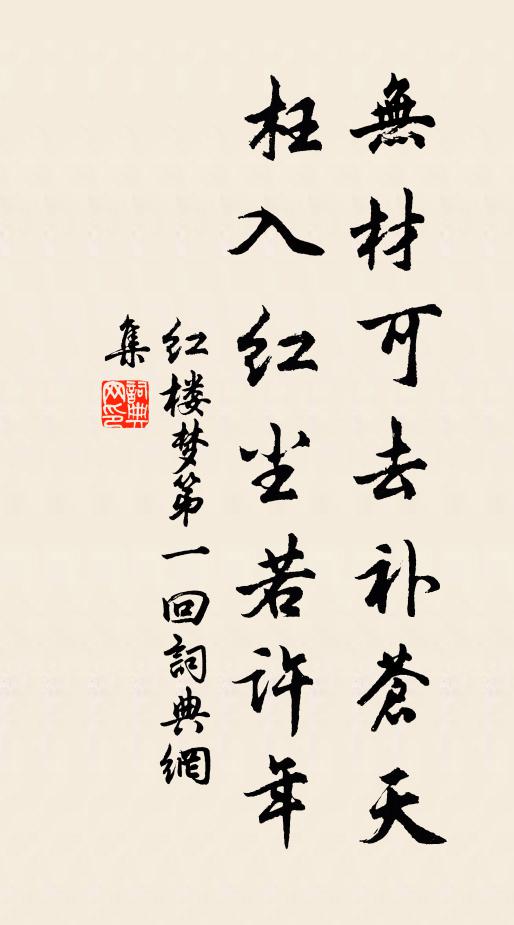 無材可去补蒼天
枉入红尘若许年
红楼梦第一回詞典網
集
詞典网印